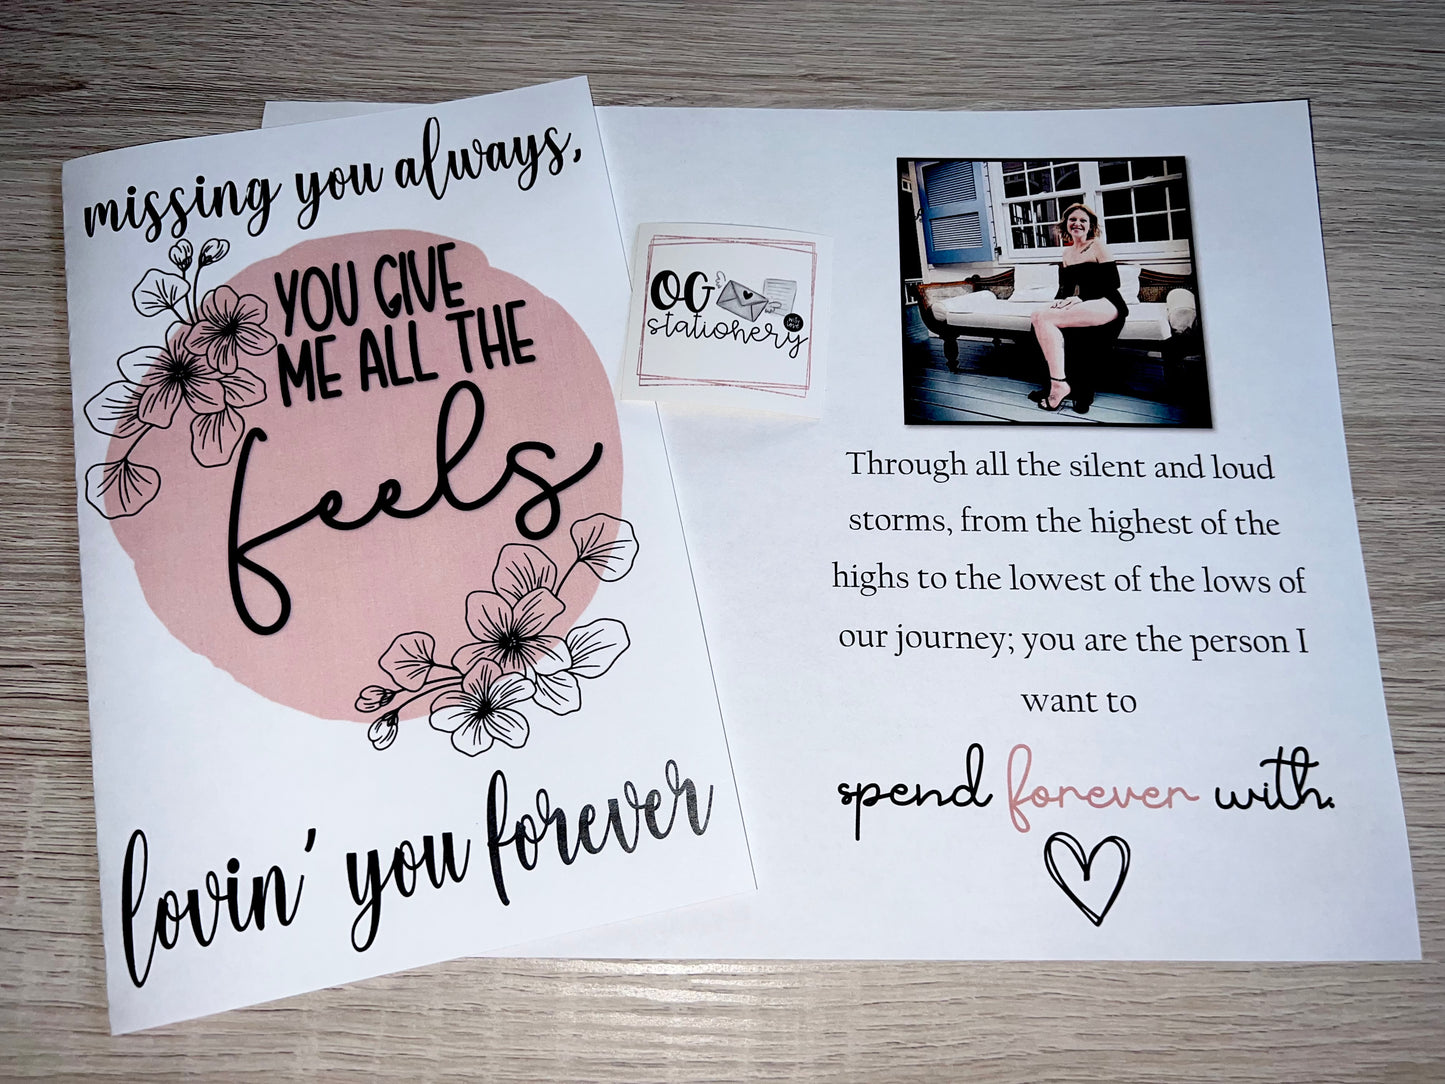 missing you always,
YOU GIVE
ME ALL THE
feels
lovin' you forever
OG
stationery
with
love
Through all the silent and loud
storms, from the highest of the
highs to the lowest of the lows of
our journey; you are the person I
want to
spend forever with.